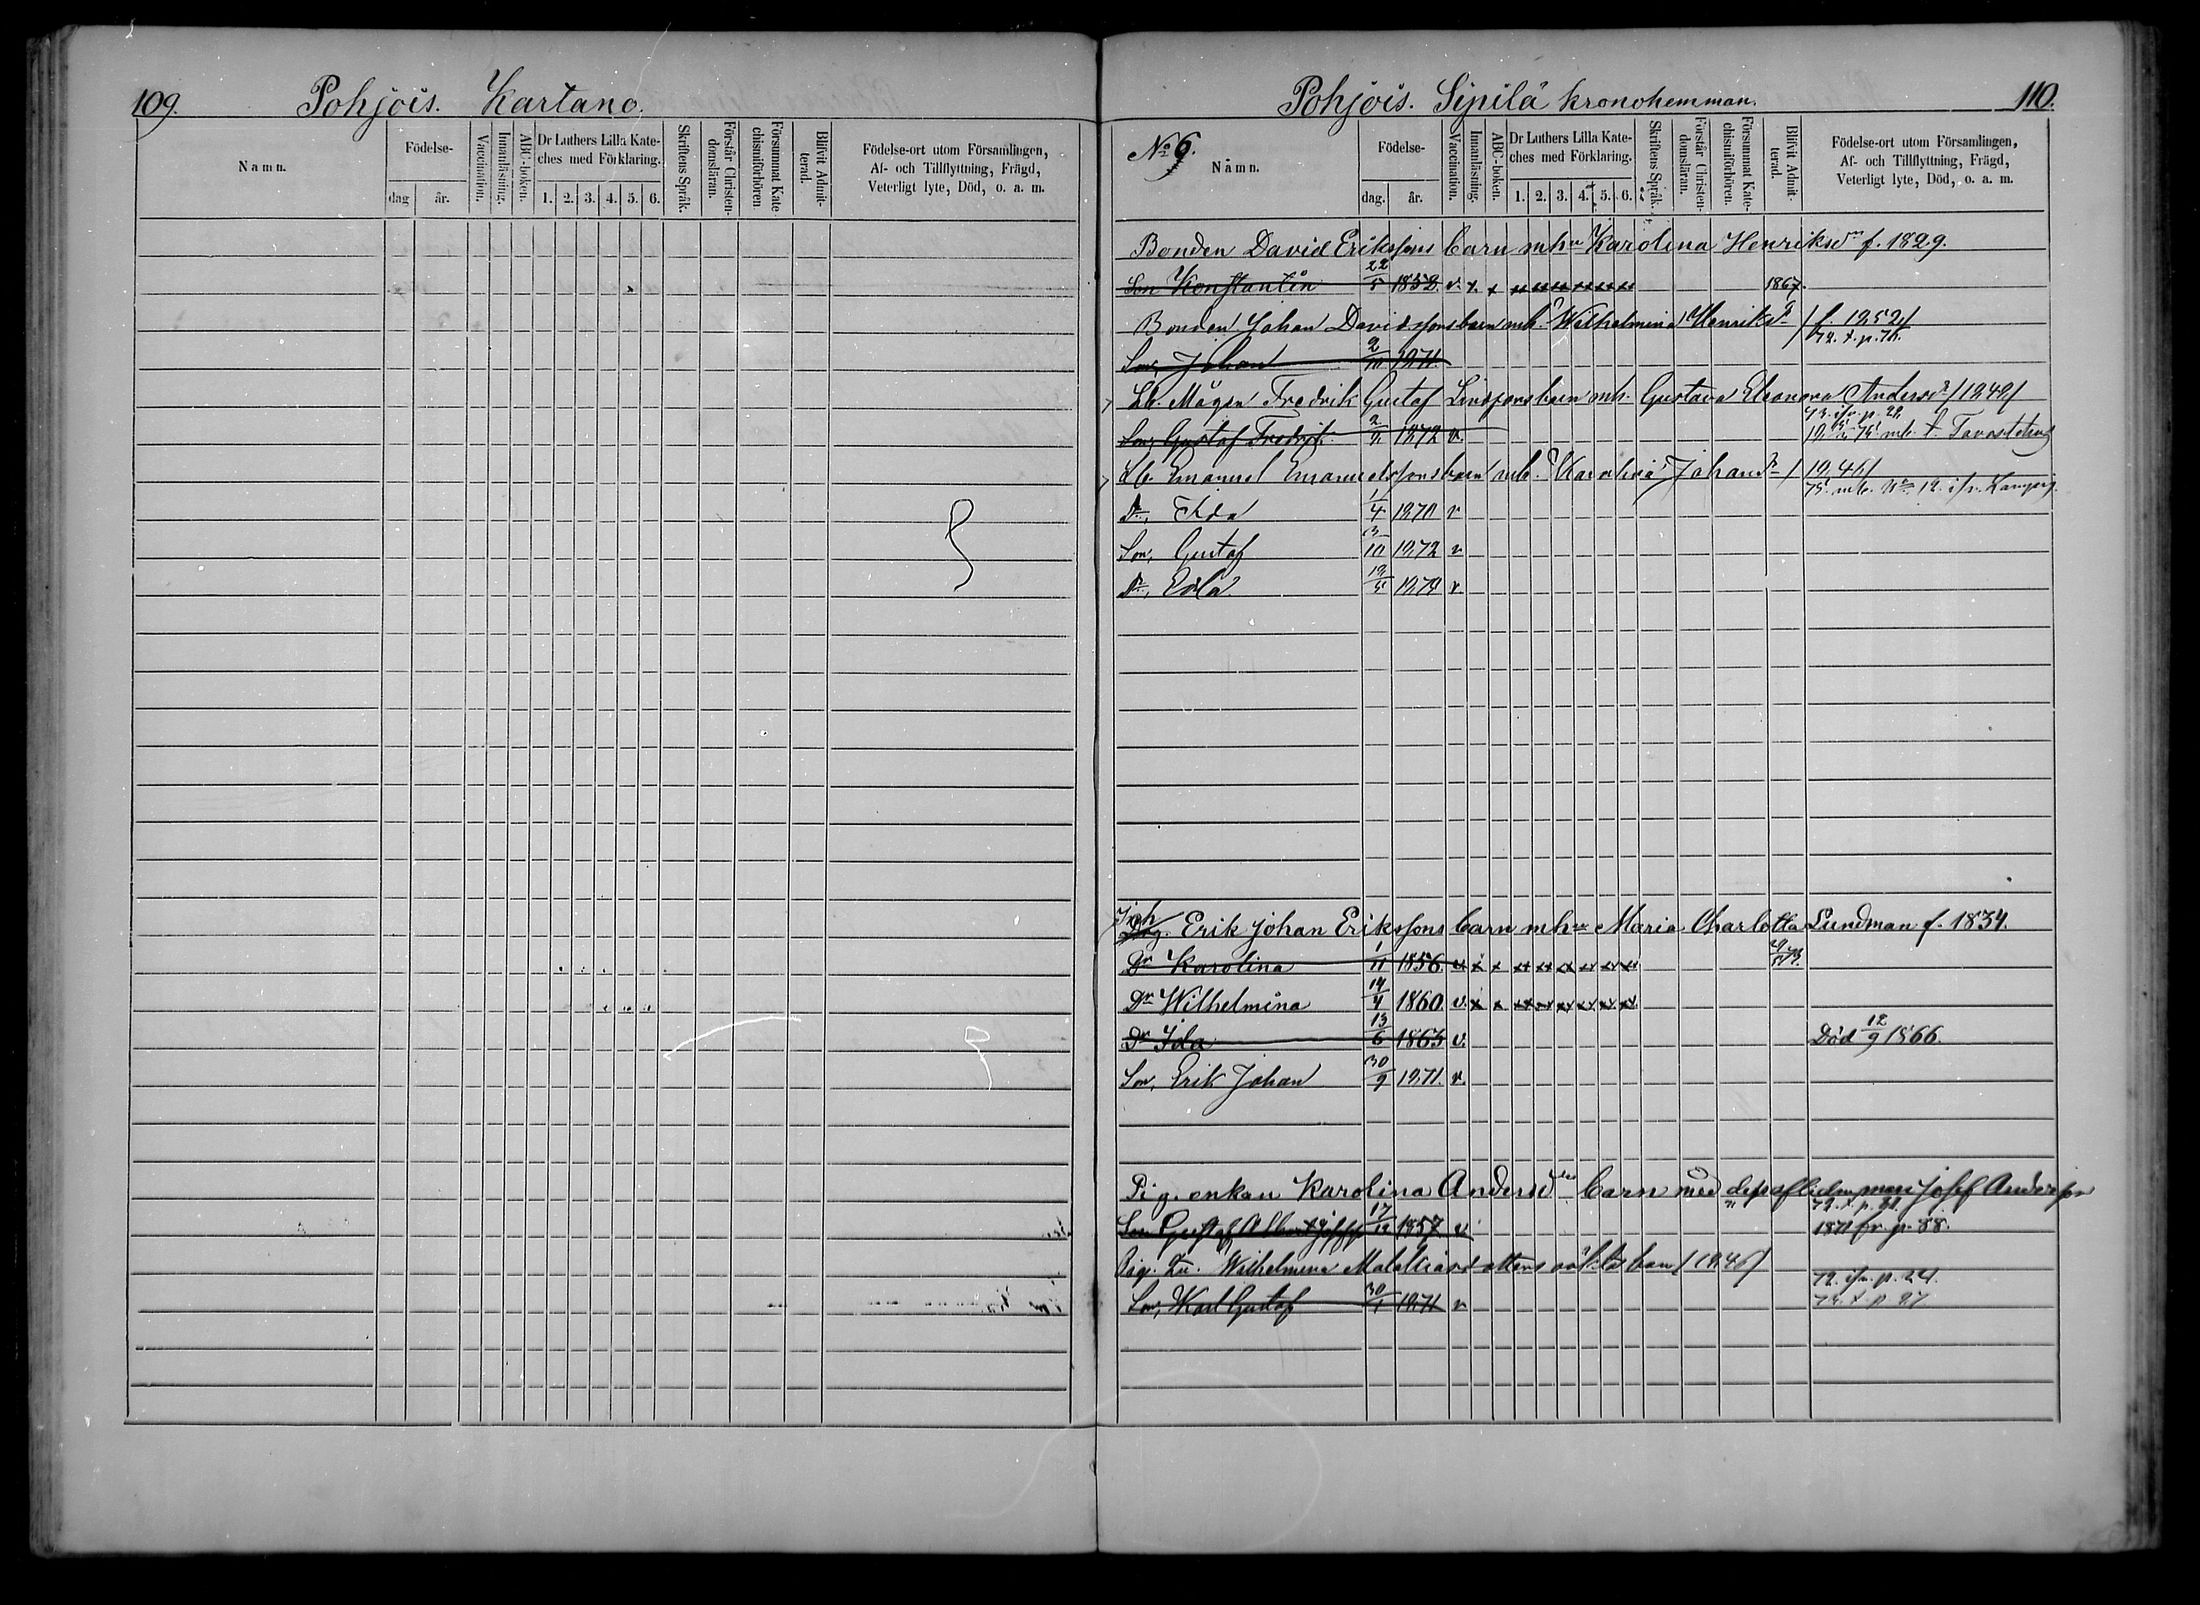 109. Pohjois. Kartano.
Namn.
Födelse-
dag
år.
Vaccination.
Innanläsning.
ABC-boken.
Dr Luthers Lilla Kate-
ches med Förklaring.
1. 2. 3. 4. 5. 6.
Skriftens Språk.
Förstår Christen-
domsläran.
Försummat Kate
chismiförhören
Blifvit Admit-
terad.
Födelse-ort utom Församlingen,
Af- och Tillflyttning, Frägd,
Veterligt lyte, Död, o. a. m.
Pohjois. Sipilä kronohemman. 110.
No 6.
Namn.
Födelse-
dag.
år.
Vaccination.
Innanläsning.
ABC-boken.
Dr Luthers Lilla Kate-
ches med Förklaring.
1. 2. 3. 4. 5. 6.
Skriftens Språk.
Förstår Christen-
domsläran.
Försummat Kate-
chismiförhören.
Blifvit Admit-
terad.
Födelse-ort utom Församlingen,
Af- och Tillflyttning, Frägd,
Veterligt lyte, Död, o. a. m.
Bonden David Erikssons barn mhu Karolina Henriksdr f. 1829.
Son Konstantin 22/5 1852. v. x. x 1867.
Bonden Johan Davidssons barn mh. Wilhelmina Henriksdr / f. 1852/
72. t. p. 76.
Son, Johan 2/10 1871.
Lb. Mågen Fredrik Gustaf barn mh. Gustava Eleonora Andersdr /1849/
73. ifr. p. 22.
Son, Gustaf Fredrik 1872 v.
Lb. Emanuel Emanuelssons barn mh. Johansdr / 1846/
Dr, Ida 1/4 1870 v
Son, Gustaf 3/10 1872 v
Dr, Edla 19/5 1874 v
Erik Johan Erikssons barn mhu Maria Charlotta Lundman f. 1834.
Dr Karolina 1/11 1856. v x x
Dr Wilhelmina 14/4 1860. v. x x
Dr Ida 13/6 1863 v. Död 12/9 1866.
Son, Erik Johan 30/9 1871. v.
Pig. enkan Karolina Andersdr barn med dess aflidne man Josef Andersson
72. t. p. 21.
Son Gustaf 17/12 1857 v 1871 fr. p. 88.
Pig. Wilhelmina oäkta barn /1846/
72. ifr. p. 24.
Son, Karl Gustaf 30/1 1871 v
73. t. p. 27